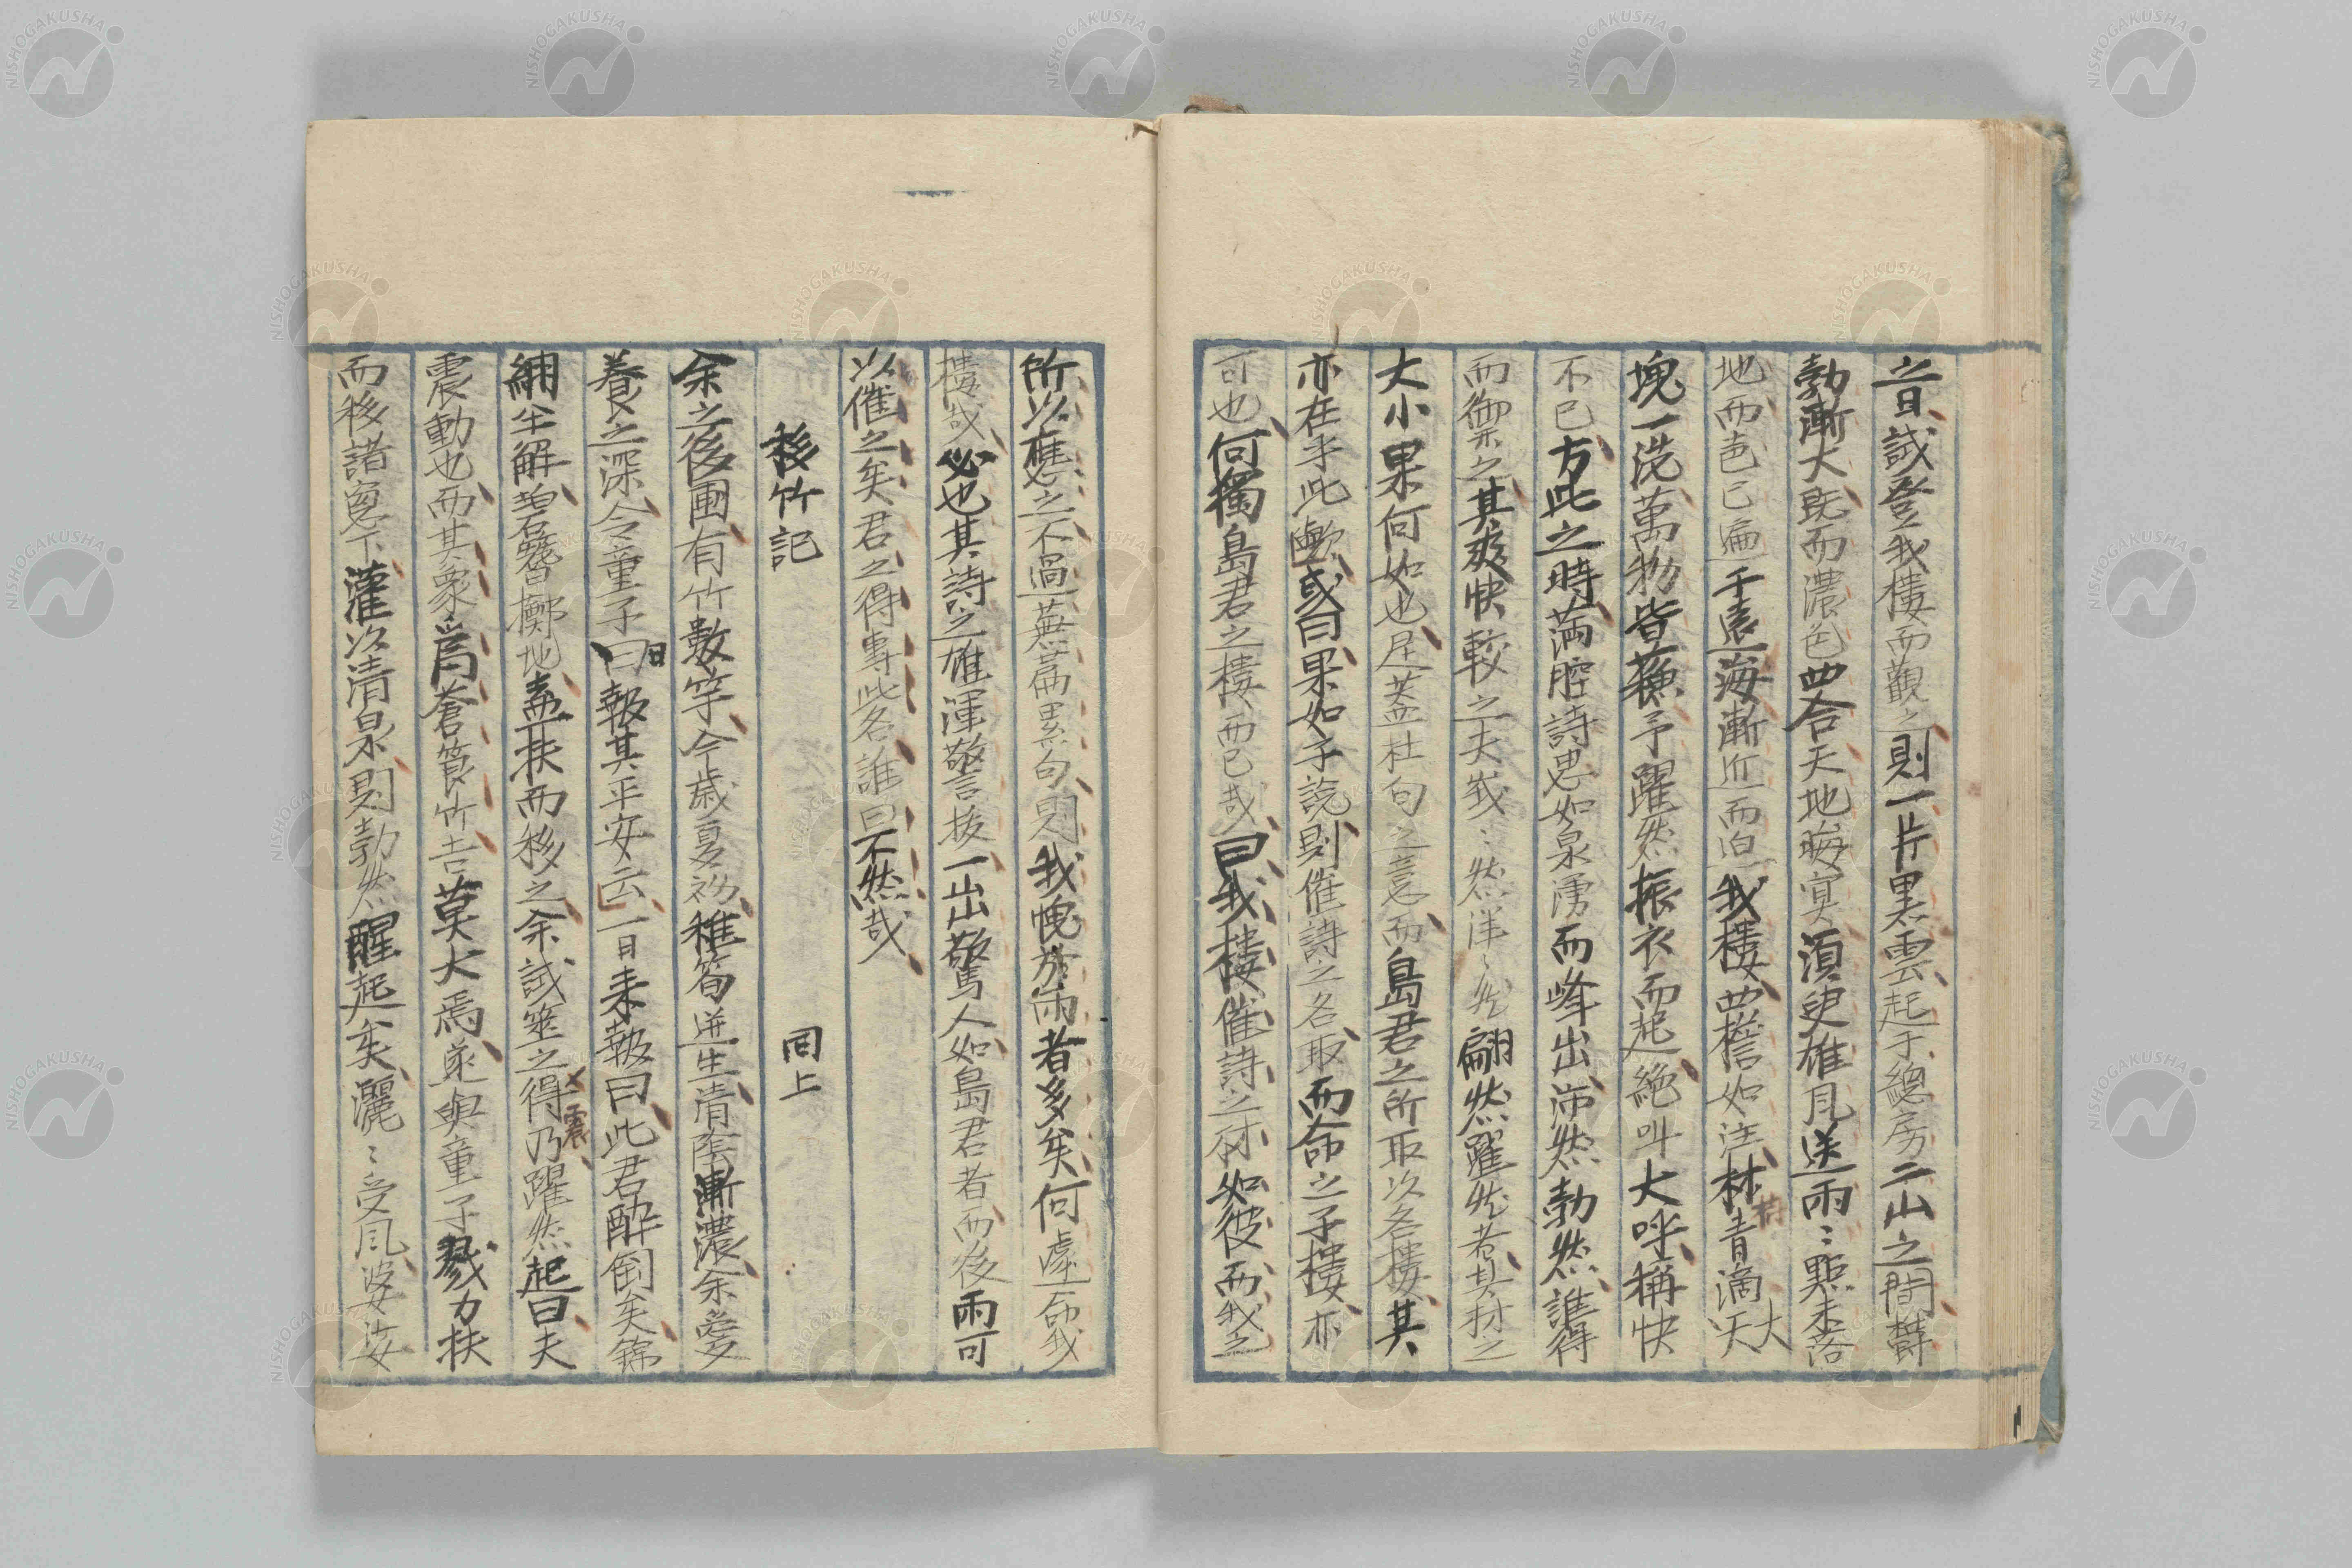 之日、試登我樓而觀之、則一片黒雲、起于總房二山之間、欝
勃漸大、既而濃色四合、天地晦冥、須臾雄風送雨、〻點未落
地、而色已遍千遠海、漸近而白、我樓四檐如注、林青滴、大
塊一洗、萬物皆蘓、予躍然振衣而起、絶叫大呼、稱快
不已、方此之時、満腔詩思如泉湧而峰出、沛然勃然、誰得
而御之、其爽快較之夫峩〻然洋〻然翩然躍然者、其材之
大小果何如也、是蓋杜句之意、而島君之所取以名樓、其
亦在乎此歟、或曰、果如子説、則催詩之名、取而命之子樓、亦
可也、何獨島君之樓而已哉、曰、我樓催詩之材如彼、而我之
所以應之、不過蕪篇累句、則我愧於雨者多矣、何處命我
樓哉、必也其詩之雄渾警抜、一出驚人如島君者、而後雨可
以催之矣、君之得專此名、誰曰不然哉、
移竹記　同上
余之後圃有竹數竿、今歳夏初、稚筍迸生、清陰漸濃、余愛
養之深、令童子日報其平安云、一日来報曰、此君酔倒矣、錦
綳半解、碧簪擲地、盍扶而移之、余試筮之、得震、乃躍然起曰、夫
震動也、而其象爲蒼筤竹、吉莫大焉、遂與童子戮力扶
而移諸窓下、灌以清泉、則勃然醒起矣、灑〻受風、婆娑
NISHOGAKUSHA